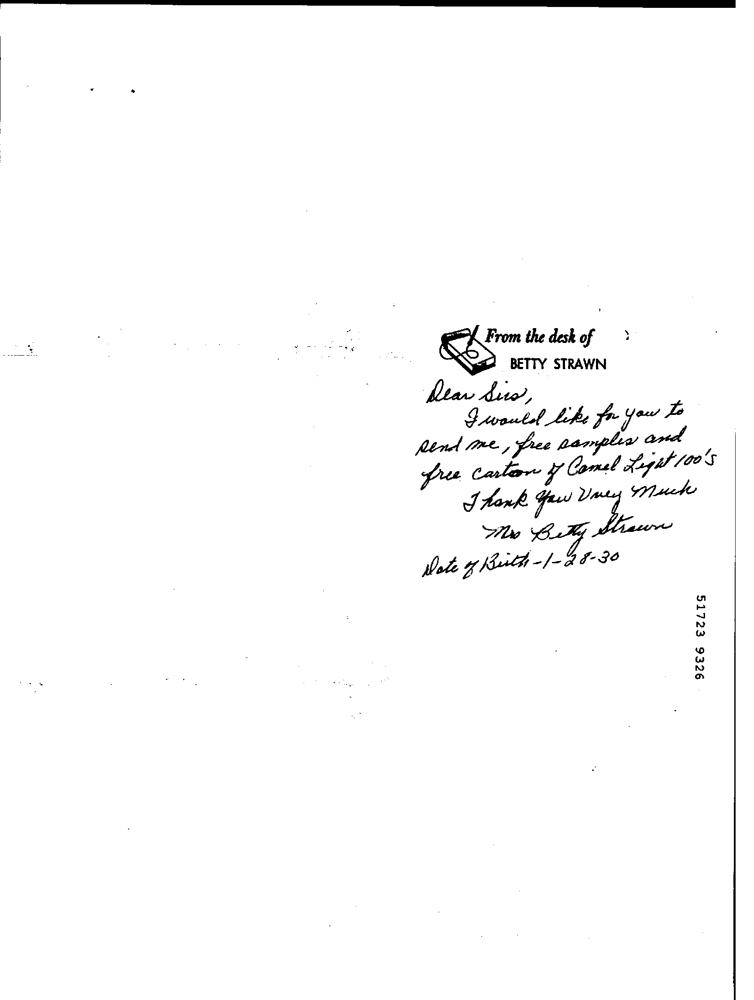 From the desk of
BETTY STRAWN
Dear Sirs,
I would like for you to
send me, free samples and
free cartoon of Camel Light 100's
Thank You Vrey Much
Mrs Betty Strawn
Date of Birth-1-28-30
51723 9326